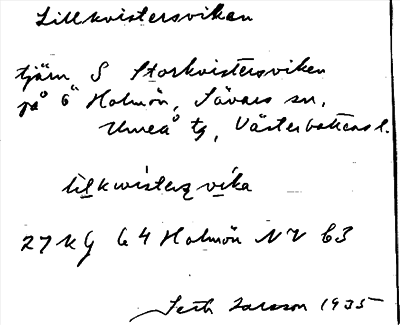 Lillkvistersviken
tjärn S Storkvistersviken
på ö Holmön, Sävars sn,
Umeå tg, Västerbottens l.
lilkwistersvika
27 K G 64 Holmön NV 63
Seth Larsson 1935